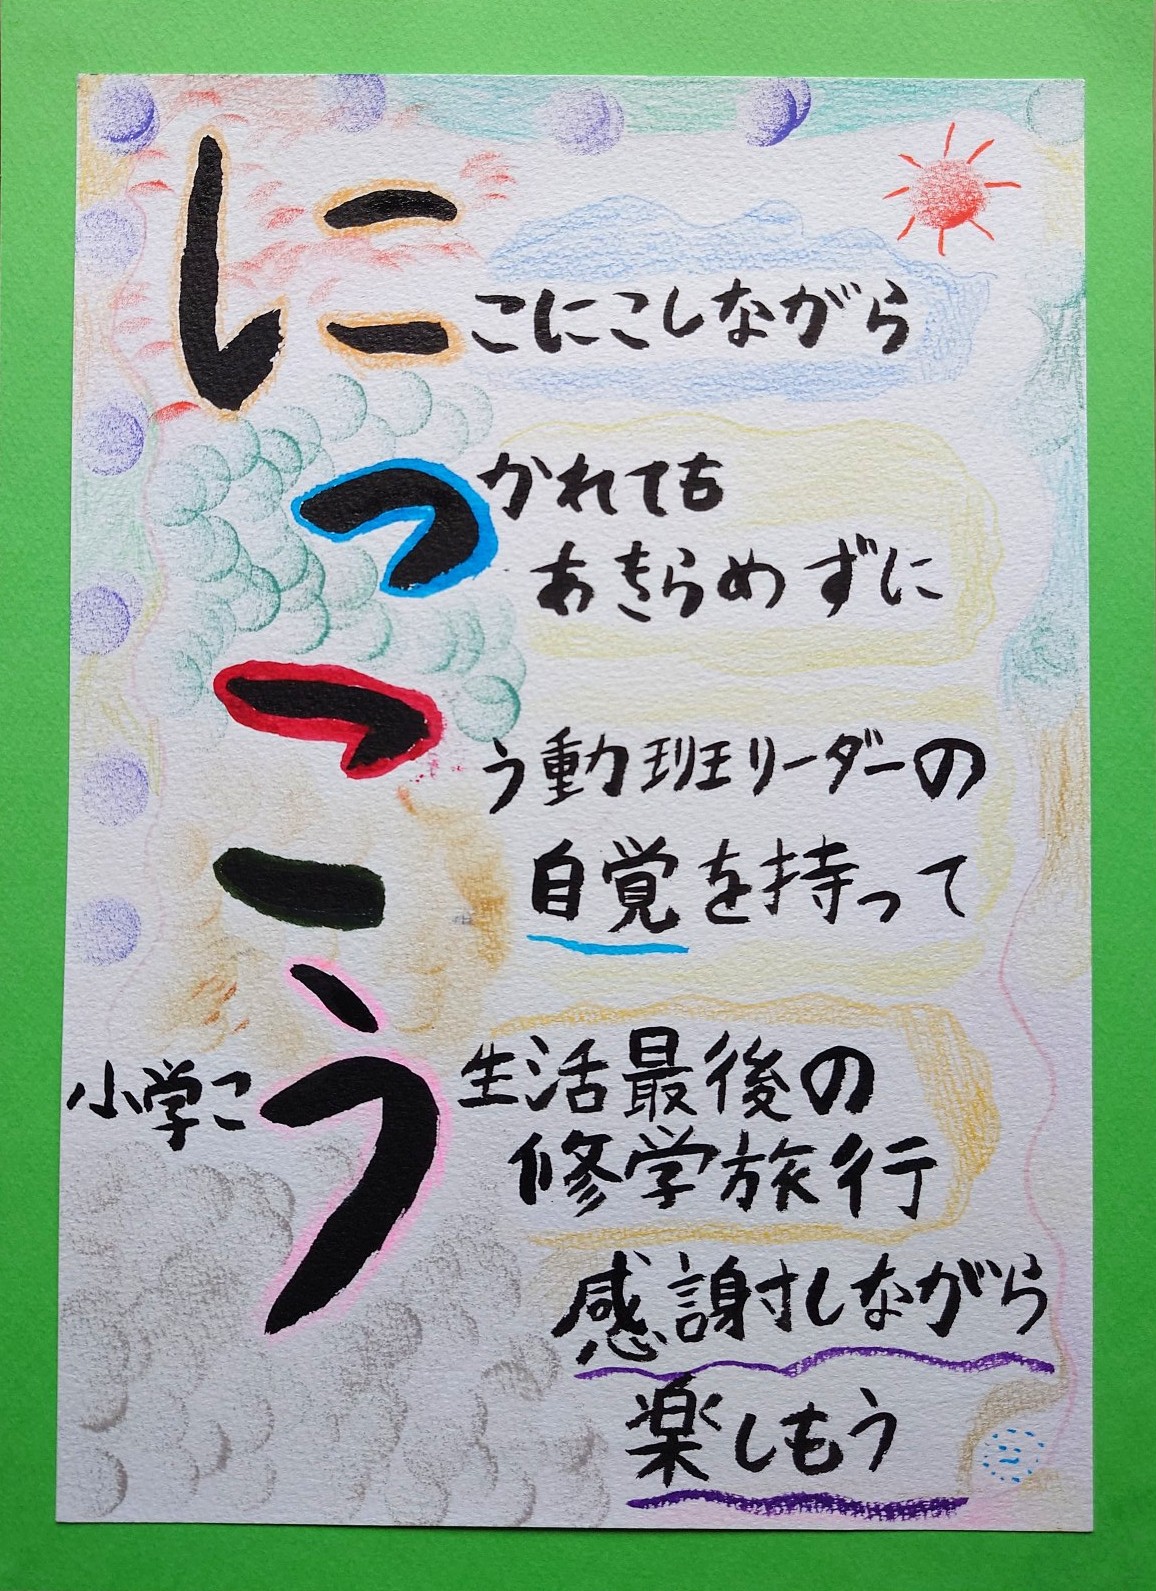 にこにこしながら
つかれても
あきらめずに
こう動班リーダーの
自覚を持って
小学こう生活最後の
修学旅行
感謝しながら
楽しもう